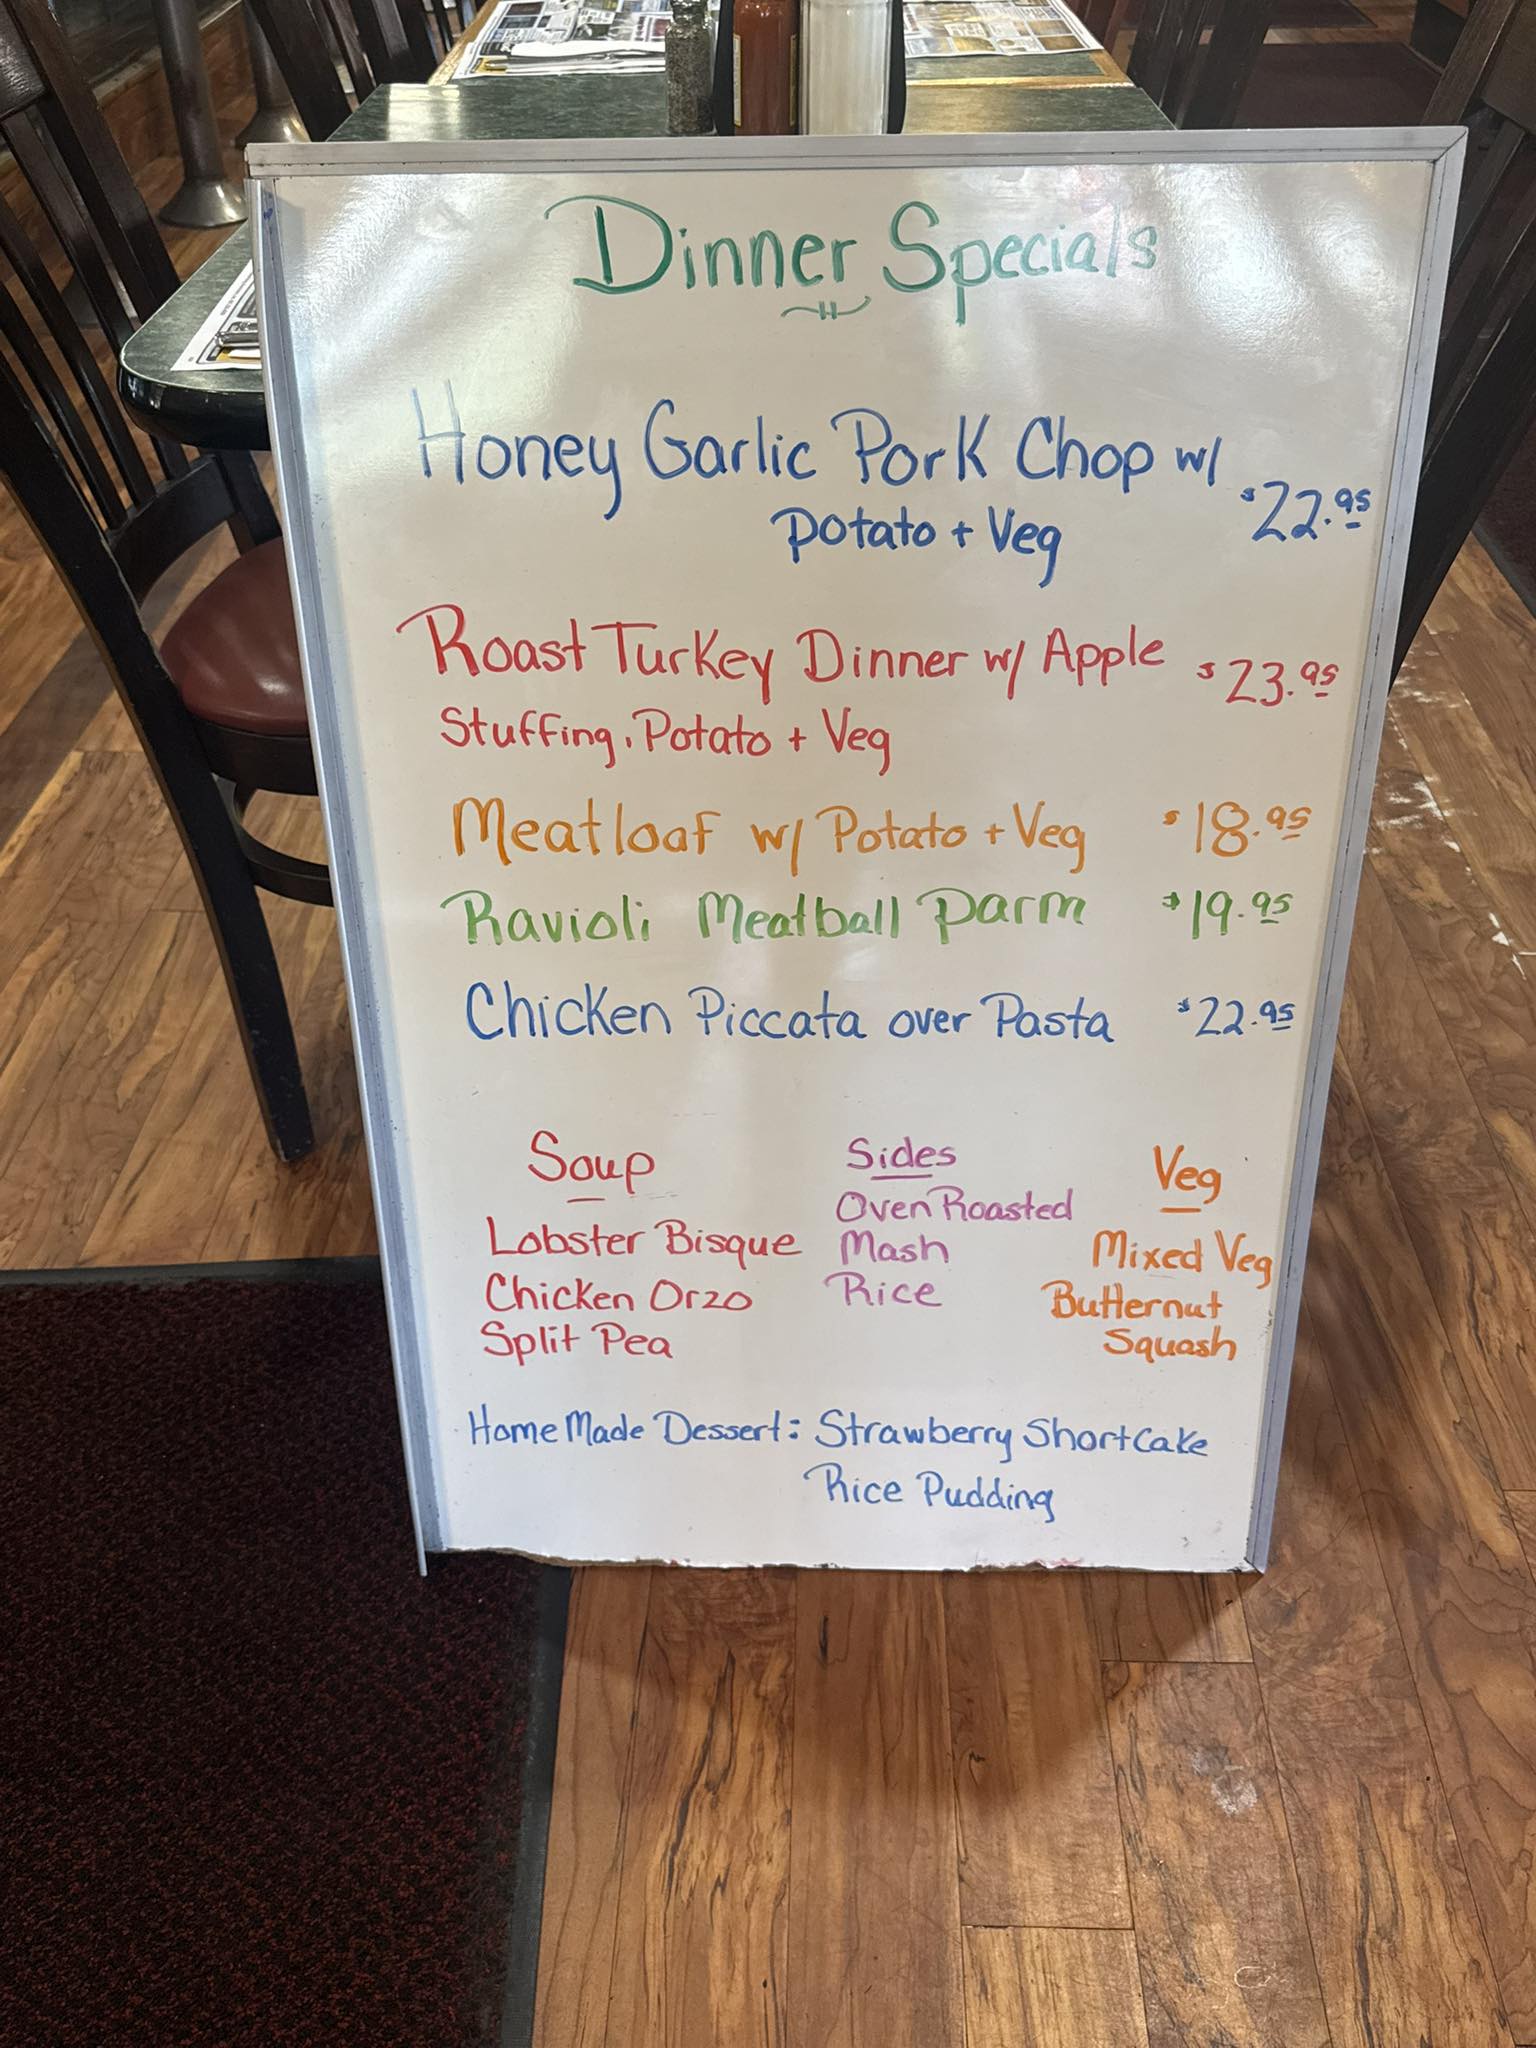 Dinner Specials
Honey Garlic Pork Chop w/
Potato + Veg $22.95
Roast Turkey Dinner w/ Apple $23.95
Stuffing, Potato + Veg
Meatloaf w/ Potato + Veg $18.95
Ravioli Meatball Parm $19.95
Chicken Piccata over Pasta $22.95
Soup
Lobster Bisque
Chicken Orzo
Split Pea
Sides
Oven Roasted
Mash
Rice
Veg
Mixed Veg
Butternut
Squash
Home Made Dessert: Strawberry Shortcake
Rice Pudding